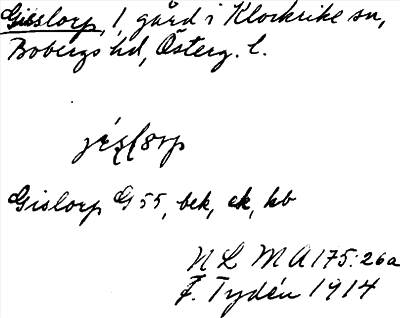 Gislorp, 1, gård i Klockrike sn,
Bobergs hd, Österg. l.
Gislorp G 55, bek, ek, hb
N L M A 175:26a
F. Tydén 1914